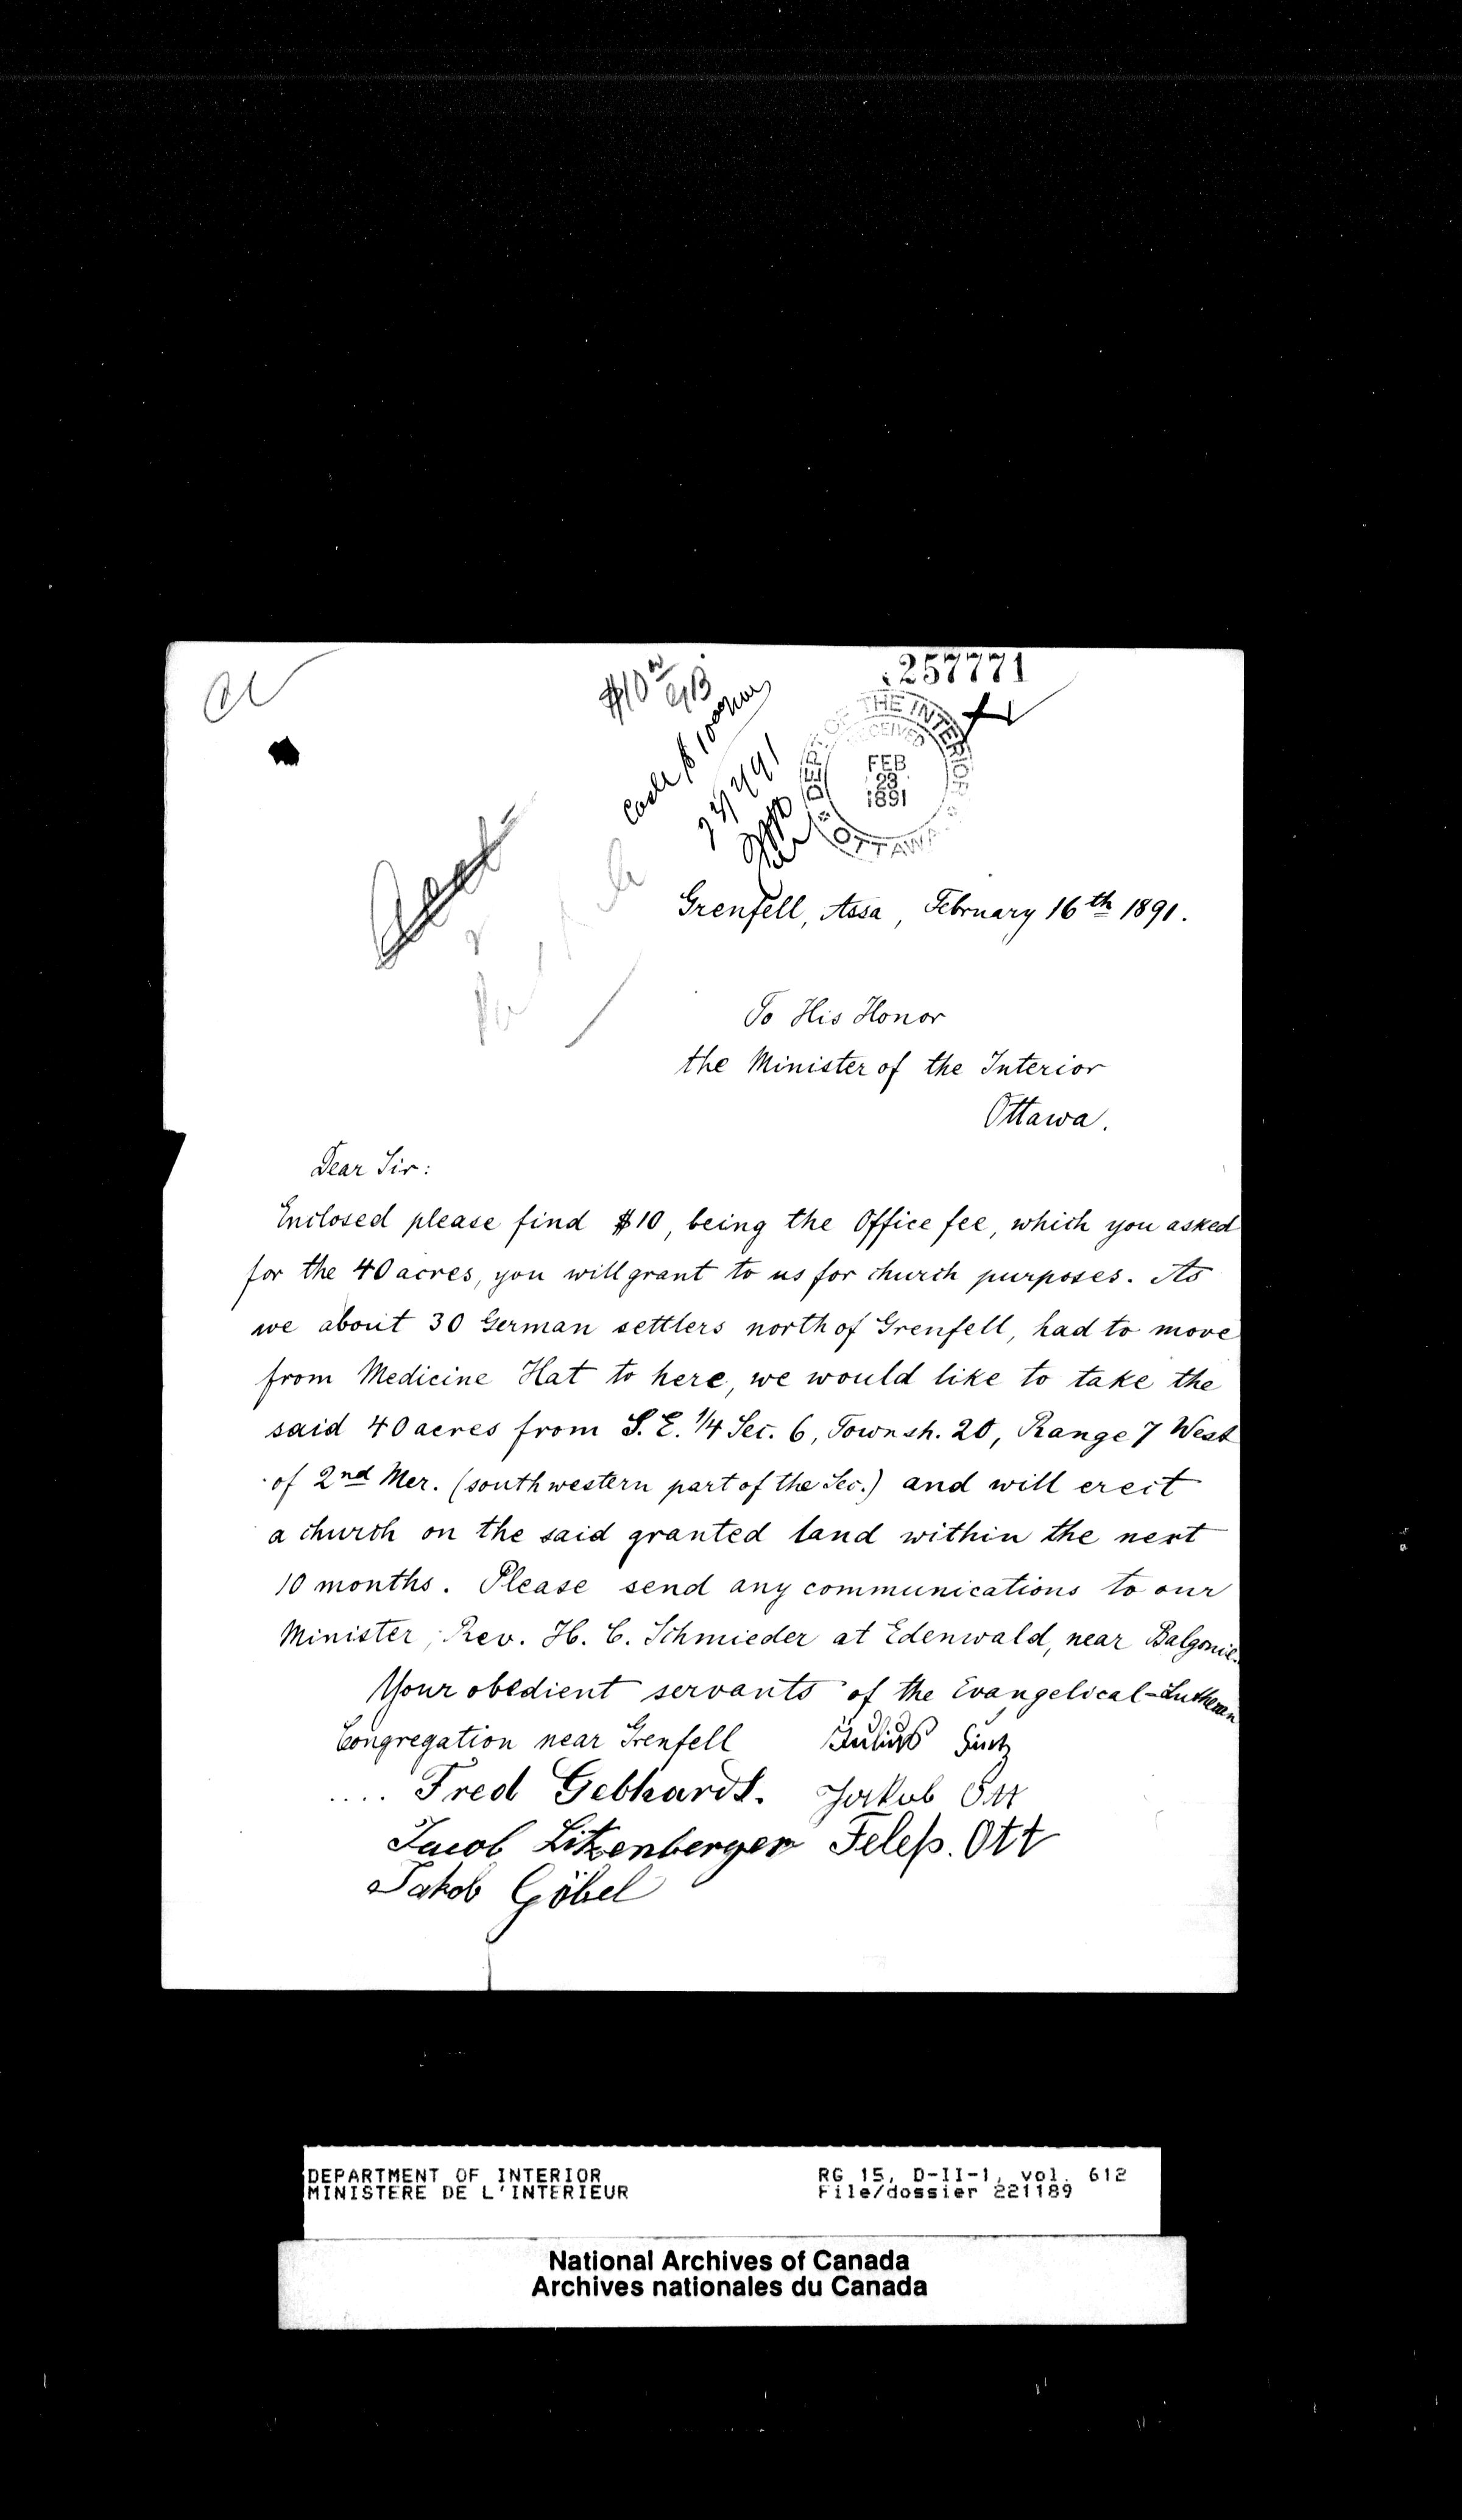 257771
$10
DEPT. OF THE INTERIOR
RECEIVED
FEB
23
1891
OTTAWA
Grenfell, Assa, February 16th 1891.
To His Honor
the Minister of the Interior
Ottawa.
Dear Sir:
Enclosed please find $10, being the Office fee, which you asked
for the 40 acres, you will grant to us for church purposes. As
we about 30 German settlers north of Grenfell, had to move
from Medicine Hat to here, we would like to take the
said 40 acres from S. E. 1/4 Sec. 6, Townsh. 20, Range 7 West
of 2nd Mer. (southwestern part of the Sec.) and will erect
a church on the said granted land within the next
10 months. Please send any communications to our
Minister, Rev. H. C. Schmieder at Edenwald, near Balgonie.
Your obedient servants of the Evangelical-Lutheran
Congregation near Grenfell Julius
.... Fred Gebhardt. Jakob Ott
Jacob Litzenberger Felep. Ott
Jakob Göbel
DEPARTMENT OF INTERIOR RG 15, D-II-1, vol. 612
MINISTERE DE L'INTERIEUR File/dossier 221189
National Archives of Canada
Archives nationales du Canada